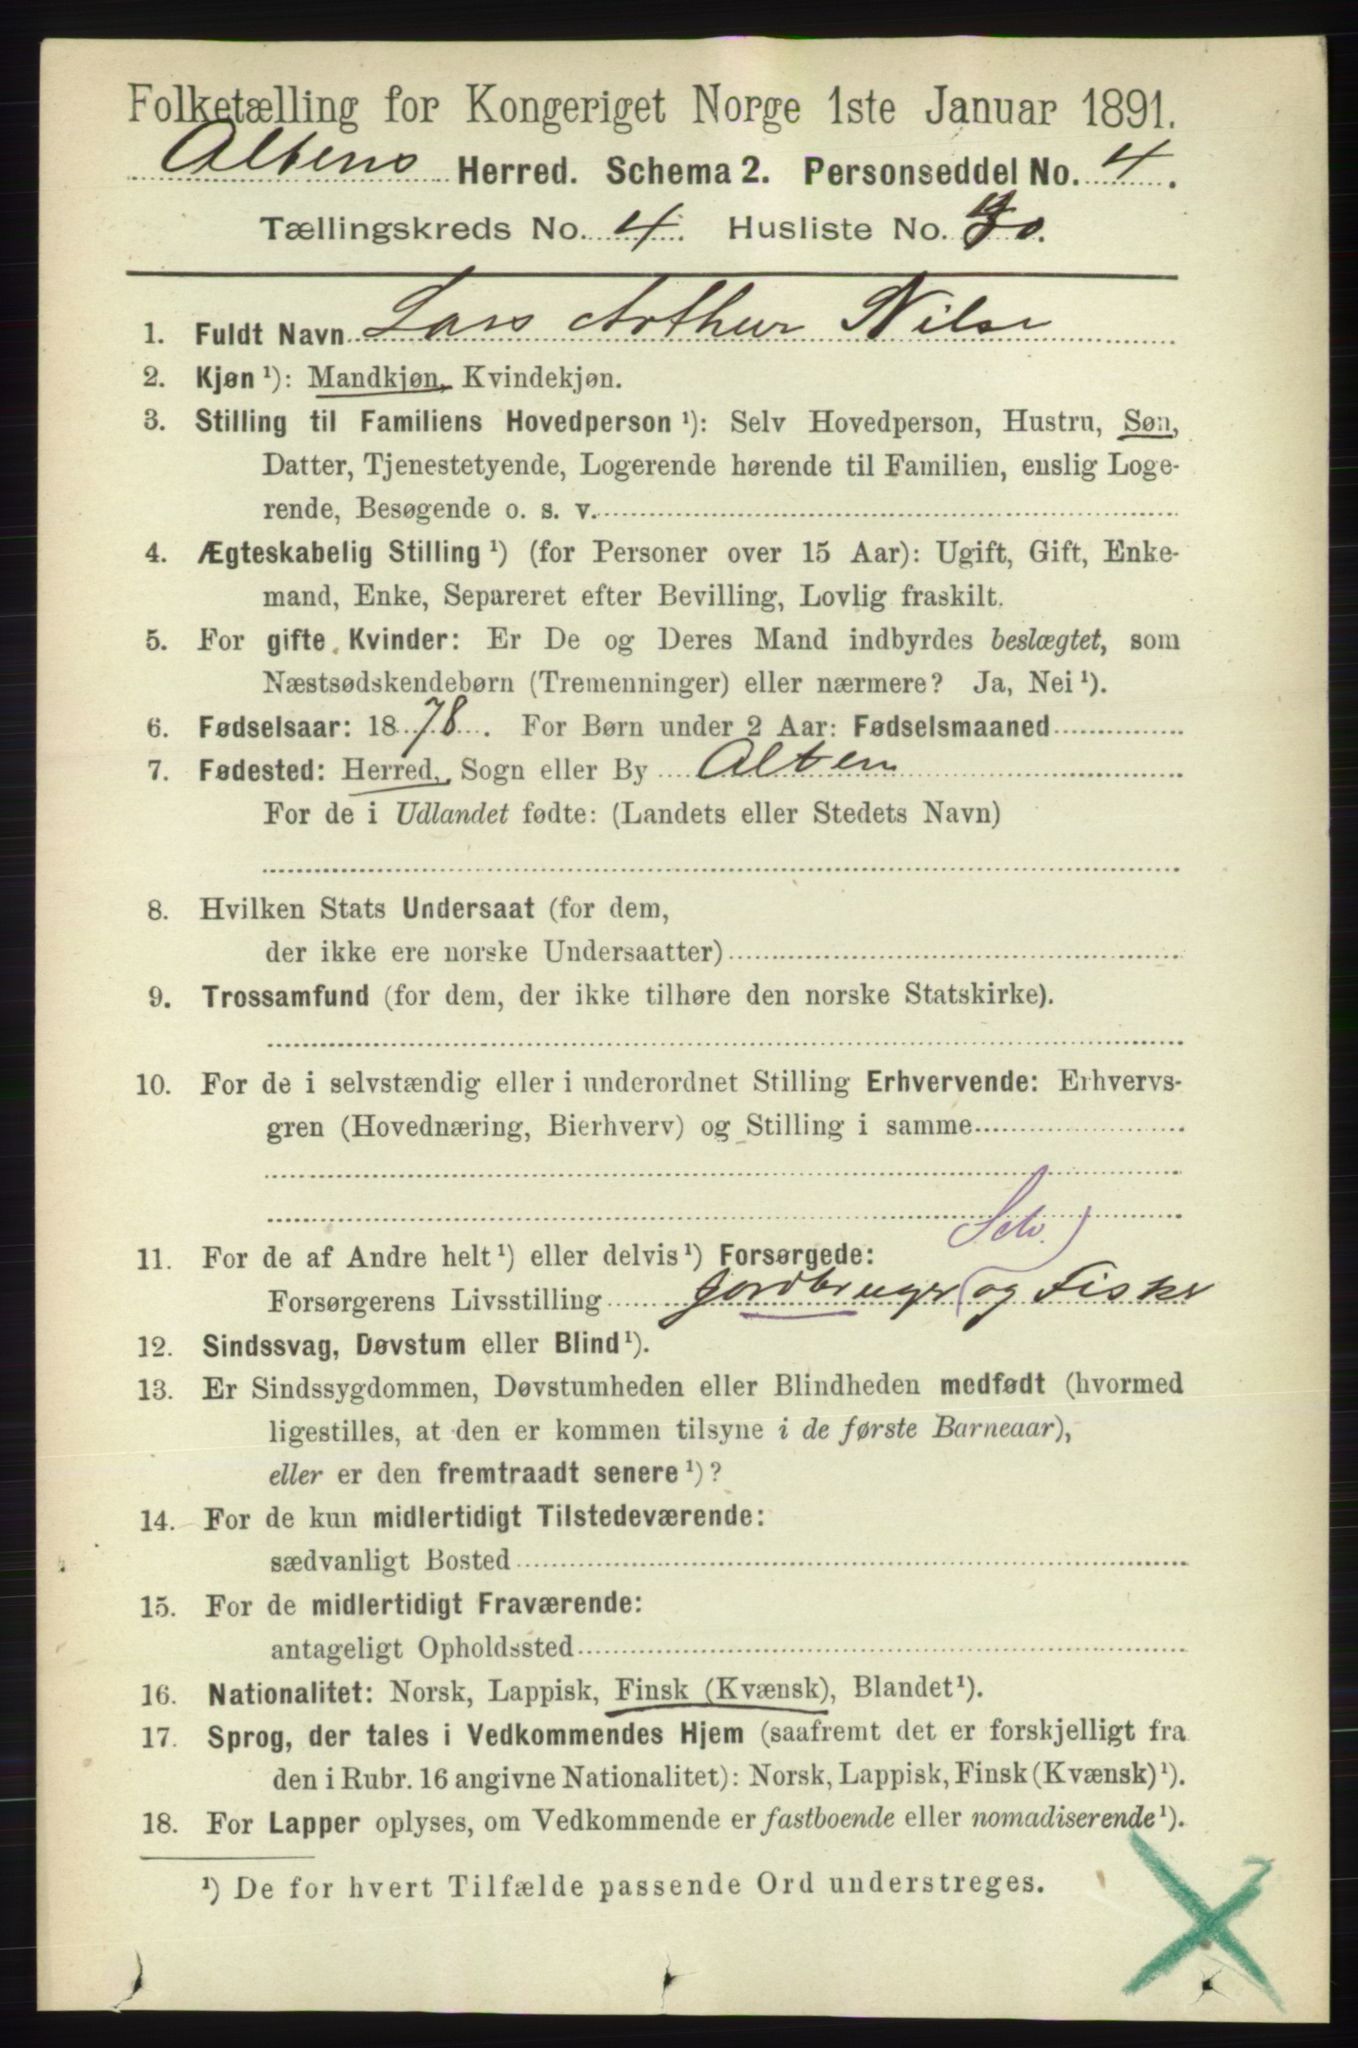 Folketælling for Kongeriget Norge 1ste Januar 1891.
Altens Herred. Schema 2. Personseddel No. 4.
Tællingskreds No. 4. Husliste No.
1. Fuldt Navn Lars Arthur Nilse
2. Kjøn ¹): Mandkjøn, Kvindekjøn.
3. Stilling til Familiens Hovedperson ¹): Selv Hovedperson, Hustru, Søn,
Datter, Tjenestetyende, Logerende hørende til Familien, enslig Loge-
rende, Besøgende o. s. v.
4. Ægteskabelig Stilling ¹) (for Personer over 15 Aar): Ugift, Gift, Enke-
mand, Enke, Separeret efter Bevilling, Lovlig fraskilt.
5. For gifte Kvinder: Er De og Deres Mand indbyrdes beslægtet, som
Næstsødskendebørn (Tremenninger) eller nærmere? Ja, Nei ¹).
6. Fødselsaar: 1878. For Børn under 2 Aar: Fødselsmaaned
7. Fødested: Herred, Sogn eller By Alten
For de i Udlandet fødte: (Landets eller Stedets Navn)
8. Hvilken Stats Undersaat (for dem,
der ikke ere norske Undersaatter)
9. Trossamfund (for dem, der ikke tilhøre den norske Statskirke).
10. For de i selvstændig eller i underordnet Stilling Erhvervende: Erhvervs-
gren (Hovednæring, Bierhverv) og Stilling i samme
Selv.
11. For de af Andre helt ¹) eller delvis ¹) Forsørgede:
Forsørgerens Livsstilling Jordbruger og Fisker
12. Sindssvag, Døvstum eller Blind ¹).
13. Er Sindssygdommen, Døvstumheden eller Blindheden medfødt (hvormed
ligestilles, at den er kommen tilsyne i de første Barneaar),
eller er den fremtraadt senere ¹)?
14. For de kun midlertidigt Tilstedeværende:
sædvanligt Bosted
15. For de midlertidigt Fraværende:
antageligt Opholdssted
16. Nationalitet: Norsk, Lappisk, Finsk (Kvænsk), Blandet ¹).
17. Sprog, der tales i Vedkommendes Hjem (saafremt det er forskjelligt fra
den i Rubr. 16 angivne Nationalitet): Norsk, Lappisk, Finsk (Kvænsk) ¹).
18. For Lapper oplyses, om Vedkommende er fastboende eller nomadiserende ¹).
¹) De for hvert Tilfælde passende Ord understreges.